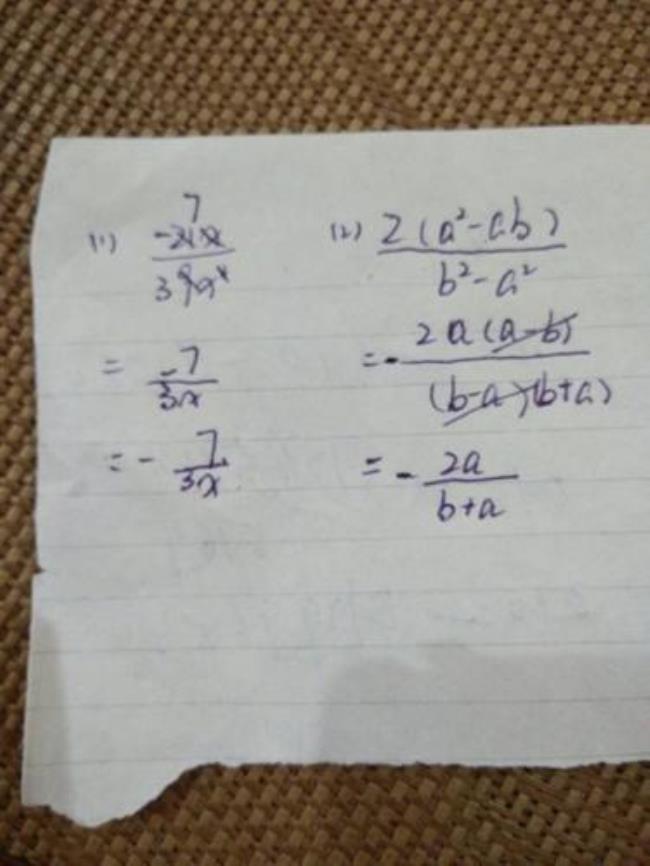 (1) 7
-21x
3 9x²
= -7
3x
= - 7
3x
(2) 2(a²-ab)
b²-a²
= - 2a(a-b)
(b-a)(b+a)
= - 2a
b+a